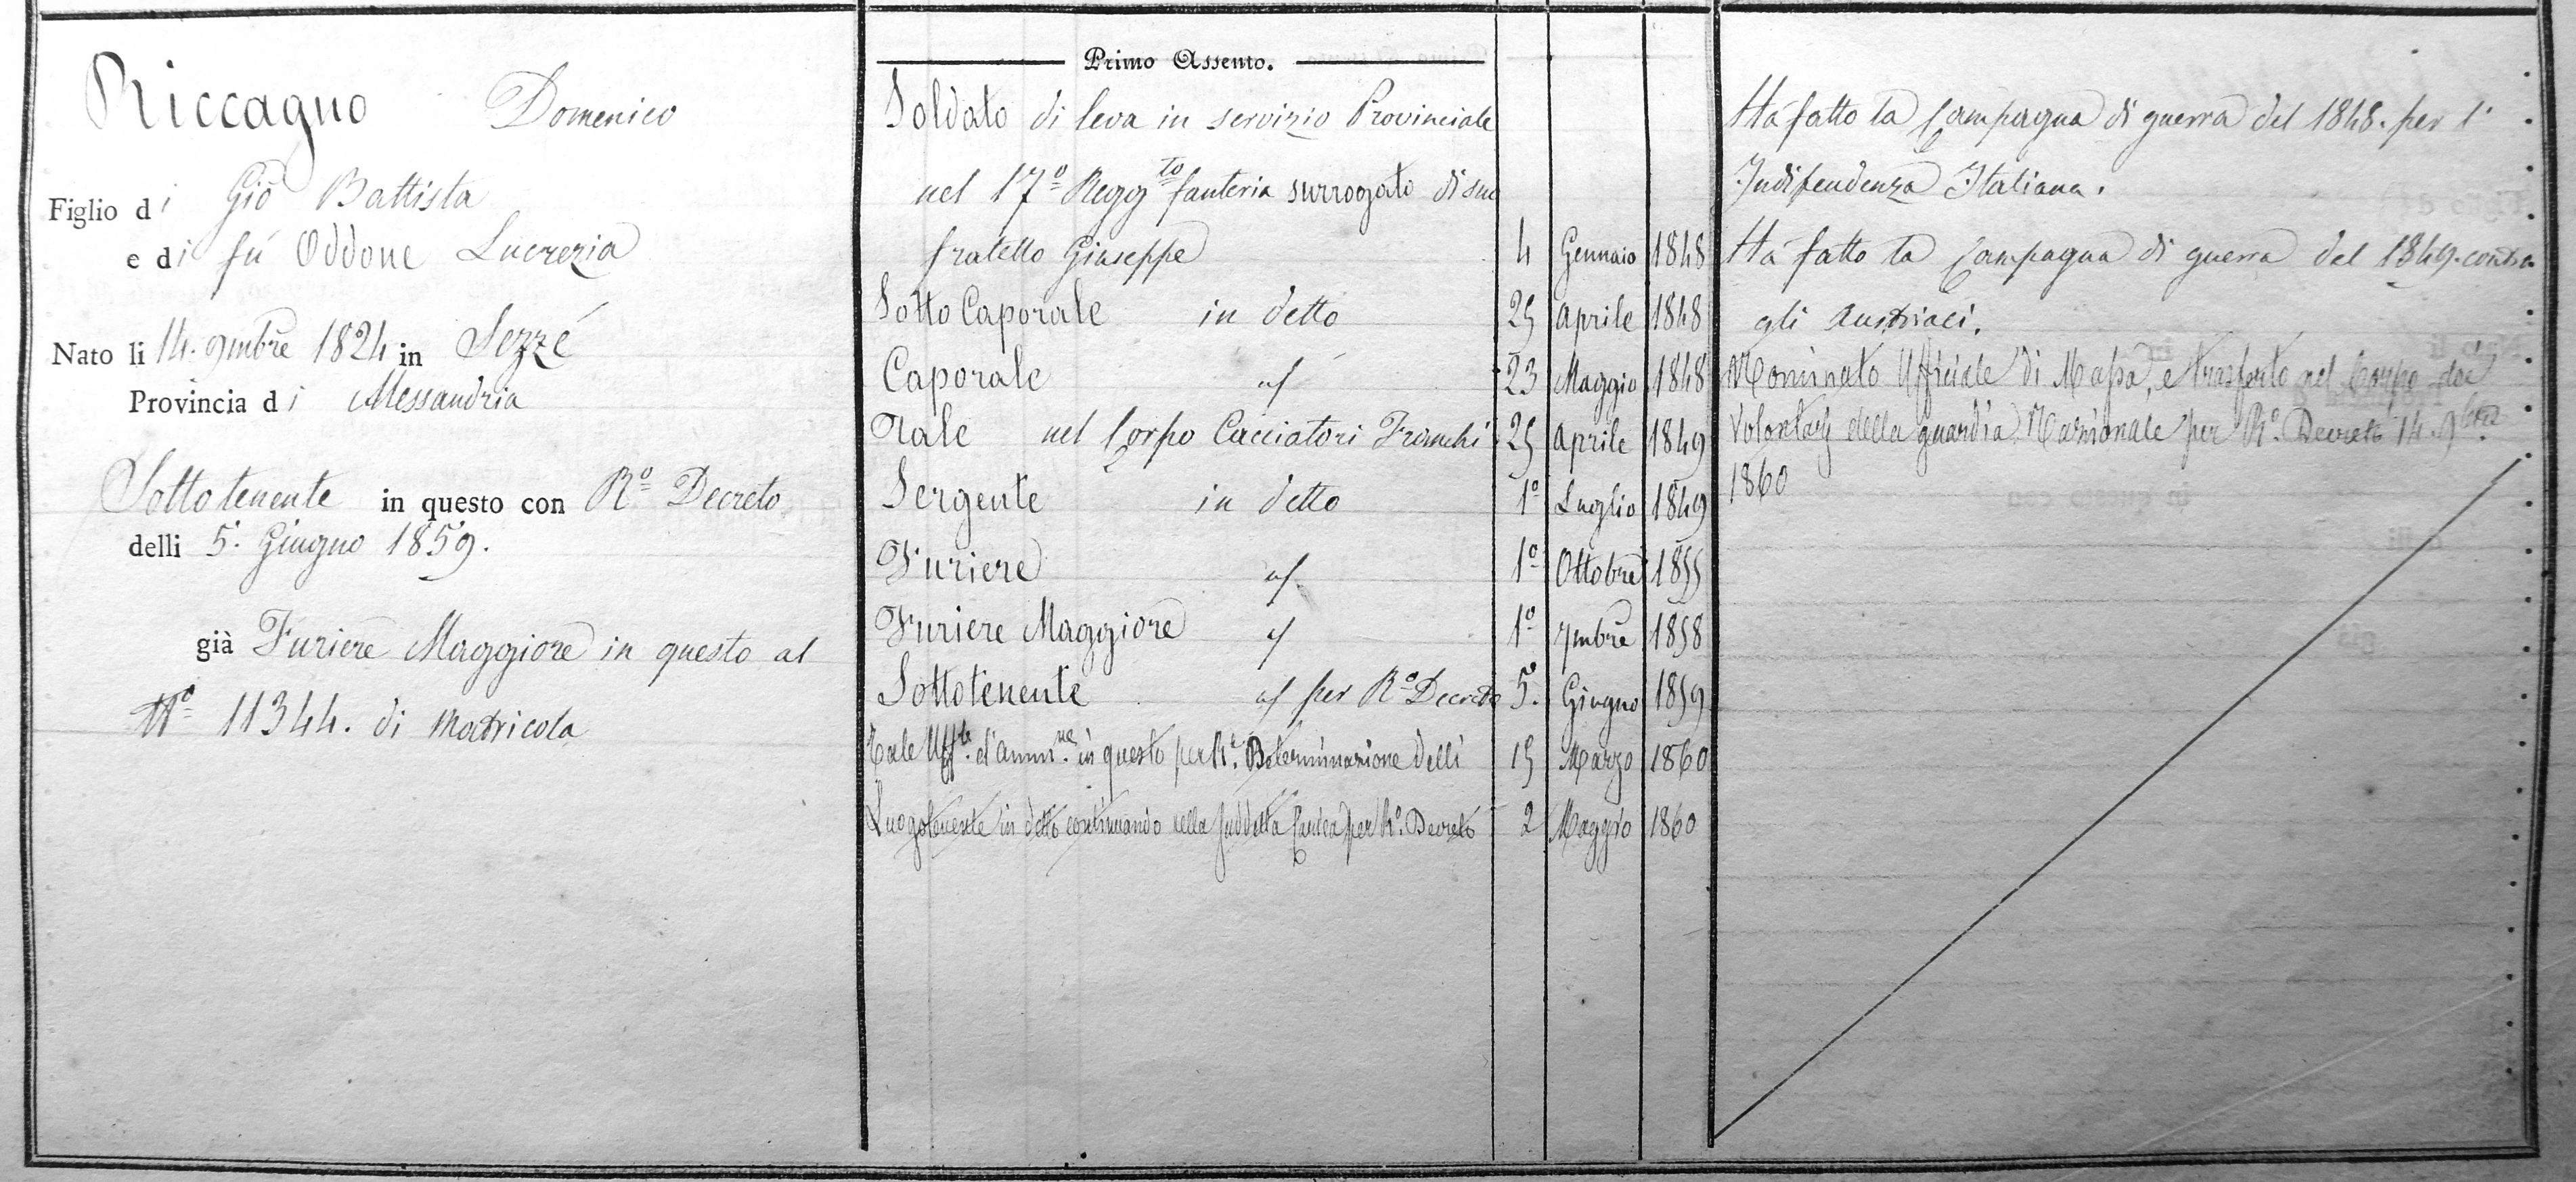 Riccagno Domenico
Figlio di Giō Battista
e di fù Oddone Lucrezia
Nato li 14. 9mbre 1824 in Sezzé
Provincia di Alessandria
Sottotenente in questo con Rº Decreto
delli 5. Giugno 1859.
già Furiere Maggiore in questo al
Nº 11344. di Matricola
Primo Assento.
Soldato di leva in servizio Provinciale
nel 17º Reggto fanteria surrogato di suo
fratello Giuseppe 4 Gennaio 1848
Sotto Caporale in detto 25 Aprile 1848
Caporale id 23 Maggio 1848
Tale nel Corpo Cacciatori Franchi 25 Aprile 1849
Sergente in detto 1º Luglio 1849
Furiere id 1º Ottobre 1855
Furiere Maggiore id 1º 7mbre 1858
Sottotenente id per Rº Decreto 5. Giugno 1859
Tale Uffle. d'ammne. in questo per Rª. Determinazione delli 15 Marzo 1860
Luogotenente in detto continuando nella suddetta Carica per Rº. Decreto 2 Maggio 1860
Ha fatto la Campagna di guerra del 1848. per l'
Indipendenza Italiana.
Ha fatto la Campagna di guerra del 1849. contro
gli Austriaci.
Nominato Ufficiale di Massa, e trasferto nel Corpo dei
Volontarj della guardia Nazionale per Rº. Decreto 14. 9bre
1860